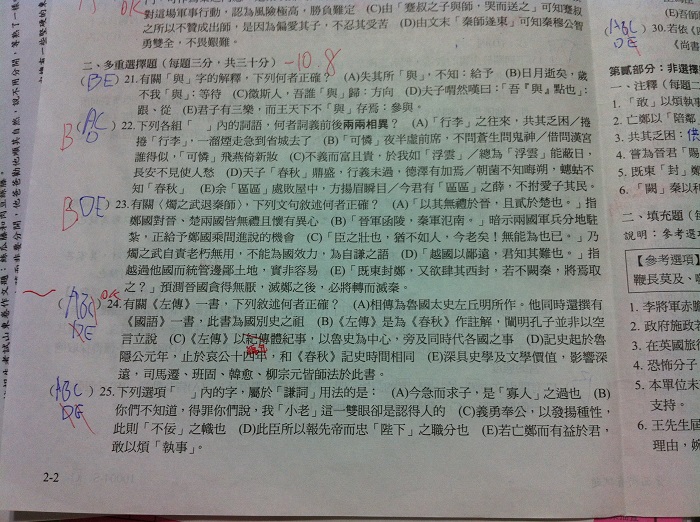 對這場軍事行動，認為風險極高，勝負難定　(C)由「蹇叔之子與師，哭而送之」可知蹇叔
之所以不贊成出師，是因為偏愛其子，不忍其受苦　(D)由文末「秦師遂東」可知秦穆公智
勇雙全，不畏艱難。
二、多重選擇題（每題三分，共三十分） -10.8
(BE) 21.有關「與」字的解釋，下列何者正確？　(A)失其所「與」，不知：給予　(B)日月逝矣，歲
不我「與」：等待　(C)微斯人，吾誰「與」歸：方向　(D)夫子喟然嘆曰：「吾『與』點也」：
跟、從　(E)君子有三樂，而王天下不「與」存焉：參與。
22.下列各組「　」內的詞語，何者詞義前後兩兩相異？　(A)「行李」之往來，共其乏困／捲
捲「行李」，一溜煙走急到省城去了　(B)「可憐」夜半虛前席，不問蒼生問鬼神／借問漢宮
誰得似，「可憐」飛燕倚新妝　(C)不義而富且貴，於我如「浮雲」／總為「浮雲」能蔽日，
長安不見使人愁　(D)天子「春秋」鼎盛，行義未過，德澤有加焉／朝菌不知晦朔，蟪蛄不
知「春秋」　(E)余「區區」處敗屋中，方揚眉瞬目／今君有「區區」之薛，不拊愛子其民。
23.關於〈燭之武退秦師〉，下列文句敘述何者正確？　(A)「以其無禮於晉，且貳於楚也。」指
鄭國對晉、楚兩國皆無禮且懷有異心　(B)「晉軍函陵，秦軍氾南。」暗示兩國軍兵分地駐
紮，正給予鄭國乘間進說的機會　(C)「臣之壯也，猶不如人，今老矣！無能為也已。」乃
燭之武自責老朽無用，不能為國效力，為自謙之語　(D)「越國以鄙遠，君知其難也。」指
越過他國而統管邊鄙土地，實非容易　(E)「既東封鄭，又欲肆其西封，若不闕秦，將焉取
之？」預測晉國貪得無厭，滅鄭之後，必將轉而滅秦。
24.有關《左傳》一書，下列敘述何者正確？　(A)相傳為魯國太史左丘明所作。他同時還撰有
《國語》一書，此書為國別史之祖　(B)《左傳》是為《春秋》作註解，闡明孔子並非以空
言立說　(C)《左傳》以紀傳體紀事，以魯史為中心，旁及同時代各國之事　(D)記史起於魯
隱公元年，止於哀公十四年，和《春秋》記史時間相同　(E)深具史學及文學價值，影響深
遠，司馬遷、班固、韓愈、柳宗元皆師法於此書。
25.下列選項「　」內的字，屬於「謙詞」用法的是：　(A)今急而求子，是「寡人」之過也　(B)
你們不知道，得罪你們說，我「小老」這一雙眼卻是認得人的　(C)義勇奉公，以發揚種性，
此則「不佞」之幟也　(D)此臣所以報先帝而忠「陛下」之職分也　(E)若亡鄭而有益於君，
敢以煩「執事」。
2-2
30.若依
《尚書
第貳部分：非選擇
一、注釋（每題二
1.「敢」以煩執事
2.亡鄭以「陪鄰
3.共其乏困：供
4.嘗為晉君「賜
5.既東「封」鄭
6.「闕」秦以利
二、填充題（每
說明：參考選
【參考選項】
鞭長莫及、
1.李將軍赤膽
2.政府施政
3.在英國旅
4.恐怖分子
5.本單位未
支持。
6.王先生屆
理由，婉